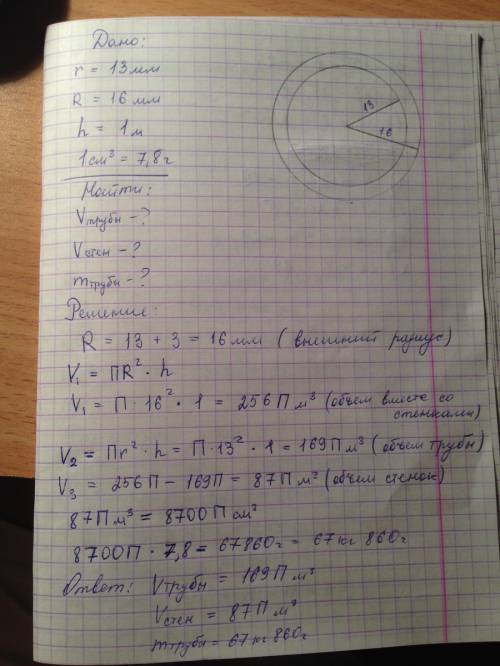 Дано:
r = 13 мм
R = 16 мм
h = 1 м
1 см³ = 7,8 г
Найти:
Vтрубы - ?
Vстен - ?
mтрубы - ?
13
16
Решение:
R = 13 + 3 = 16 мм (внешний радиус)
V₁ = ПR² · h
V₁ = П · 16² · 1 = 256 П м³ (объем вместе со
стенками)
V₂ = Пr² · h = П · 13² · 1 = 169 П м³ (объем трубы)
V₃ = 256 П - 169 П = 87 П м³ (объем стенок)
87 П м³ = 8700 П см³
8700 П · 7,8 = 67860 г = 67 кг 860 г
Ответ: Vтрубы = 169 П м³
Vстен = 87 П м³
mтрубы = 67 кг 860 г